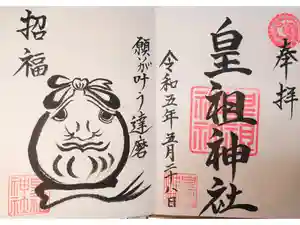 奉拝
皇祖神社
令和五年五月二十八日
願いが叶う達磨
招福